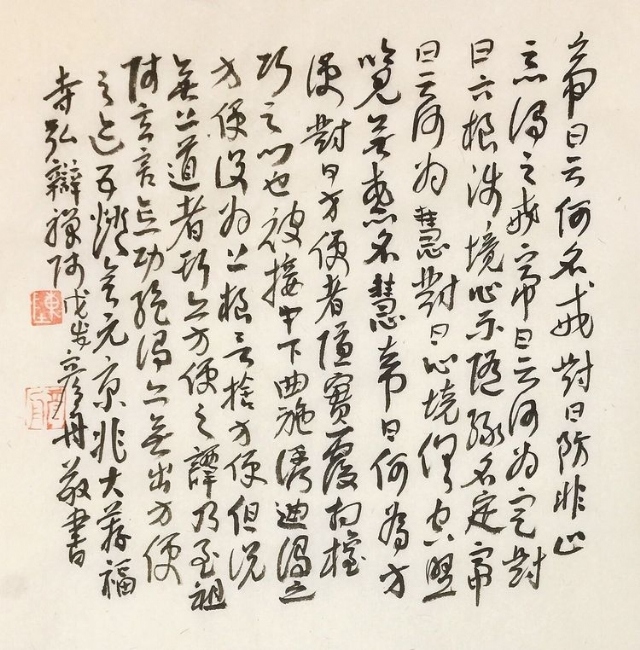 帝曰云何名戒對曰防非止
惡謂之戒帝曰云何為定對
曰六根涉境心不隨緣名定帝
曰云何為慧對曰心境俱空照
覽無惑名慧帝曰何為方
便對曰方便者隱實覆相權
巧之門也被接中下曲施誘迪謂之
方便設為上根言捨方便但說
無上道者斯亦方便之譚乃至祖
師玄言忘功絕謂亦無出方便
之迹五燈會元京兆大薦福
寺弘辯禪師戊彥舟敬書